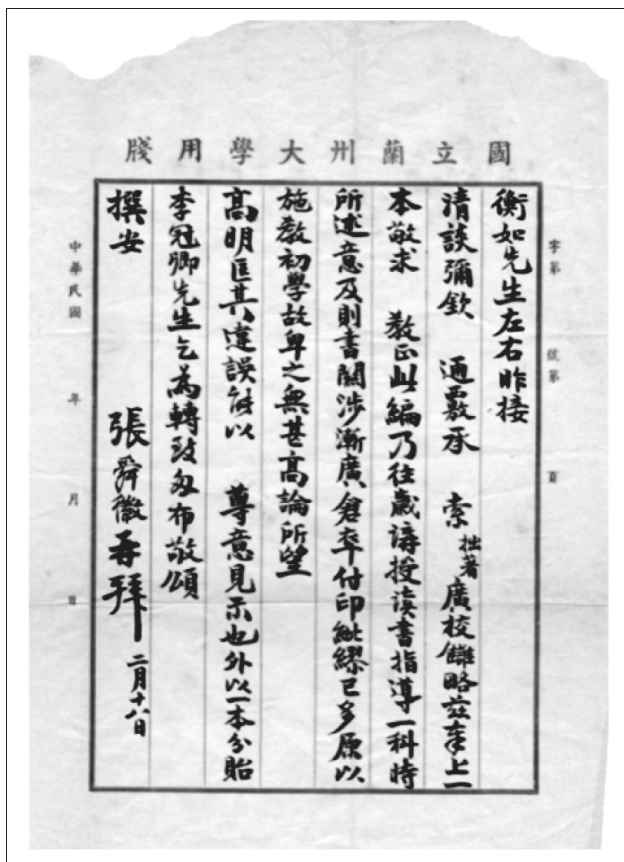 國立蘭州大學用牋
字第 號第 頁
衡如先生左右昨接
清談彌欽 通覈承 索拙著廣校讎略茲奉上一
本敬求 教正此編乃往歲講授讀書指導一科時
所述意及則書關涉漸廣倉卒付印紕繆已多原以
施教初學故卑之無甚高論所望
高明匡其違誤能以 尊意見示也外以一本分貽
李冠卿先生乞為轉致匆布敬頌
撰安 張舜徽再拜 二月十八日
中華民國 年 月 日